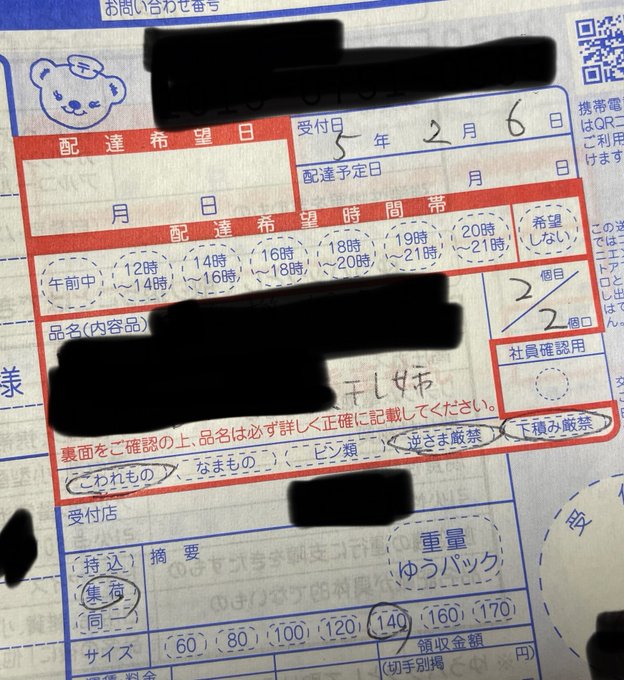 お問い合わせ番号
配達希望日
月 日
受付日
5年 2月 6日
配達予定日
月 日
携帯電
はQRコ
ご利用
けます
配達希望時間帯
午前中
12時
~14時
14時
~16時
16時
~18時
18時
~20時
19時
~21時
20時
~21時
希望
しない
品名(内容品)
様
2個目
2個口
社員確認用
干し姉
裏面をご確認の上、品名は必ず詳しく正確に記載してください。
こわれもの なまもの ビン類 逆さま厳禁 下積み厳禁
受付店
持込
集荷
同一
摘要
重量
ゆうパック
サイズ 60 80 100 120 140 160 170
領収金額
(切手別掲 円)